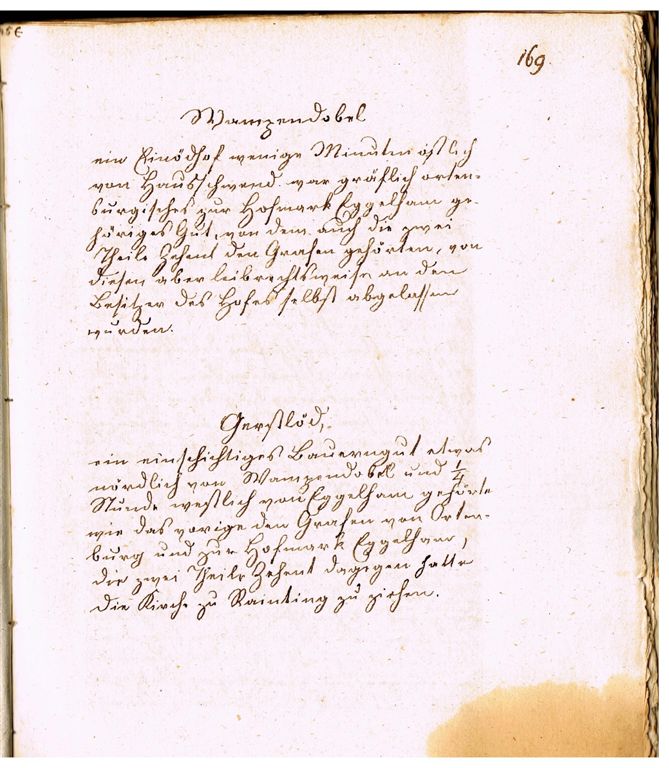 169
Wamzendobel
ein Einödhof wenige Minuten östlich
von Hausschwend war gräflich orten-
burgisches zur Hofmark Eggelham ge-
höriges Gut, von dem auch die zwei
Theile Zehent den Grafen gehörten, von
diesen aber leibrechtsweise an den
Besitzer des Hofes selbst abgelassen
wurden.
Gerstlöd,
ein einschichtiges Bauerngut etwas
nördlich von Wamzendobel und 1/4
Stunde westlich von Eggelham gehörte
wie das vorige den Grafen von Orten-
burg und zur Hofmark Eggelham,
die zwei Theile Zehent dagegen hatte
die Kirche zu Rainting zu ziehen.